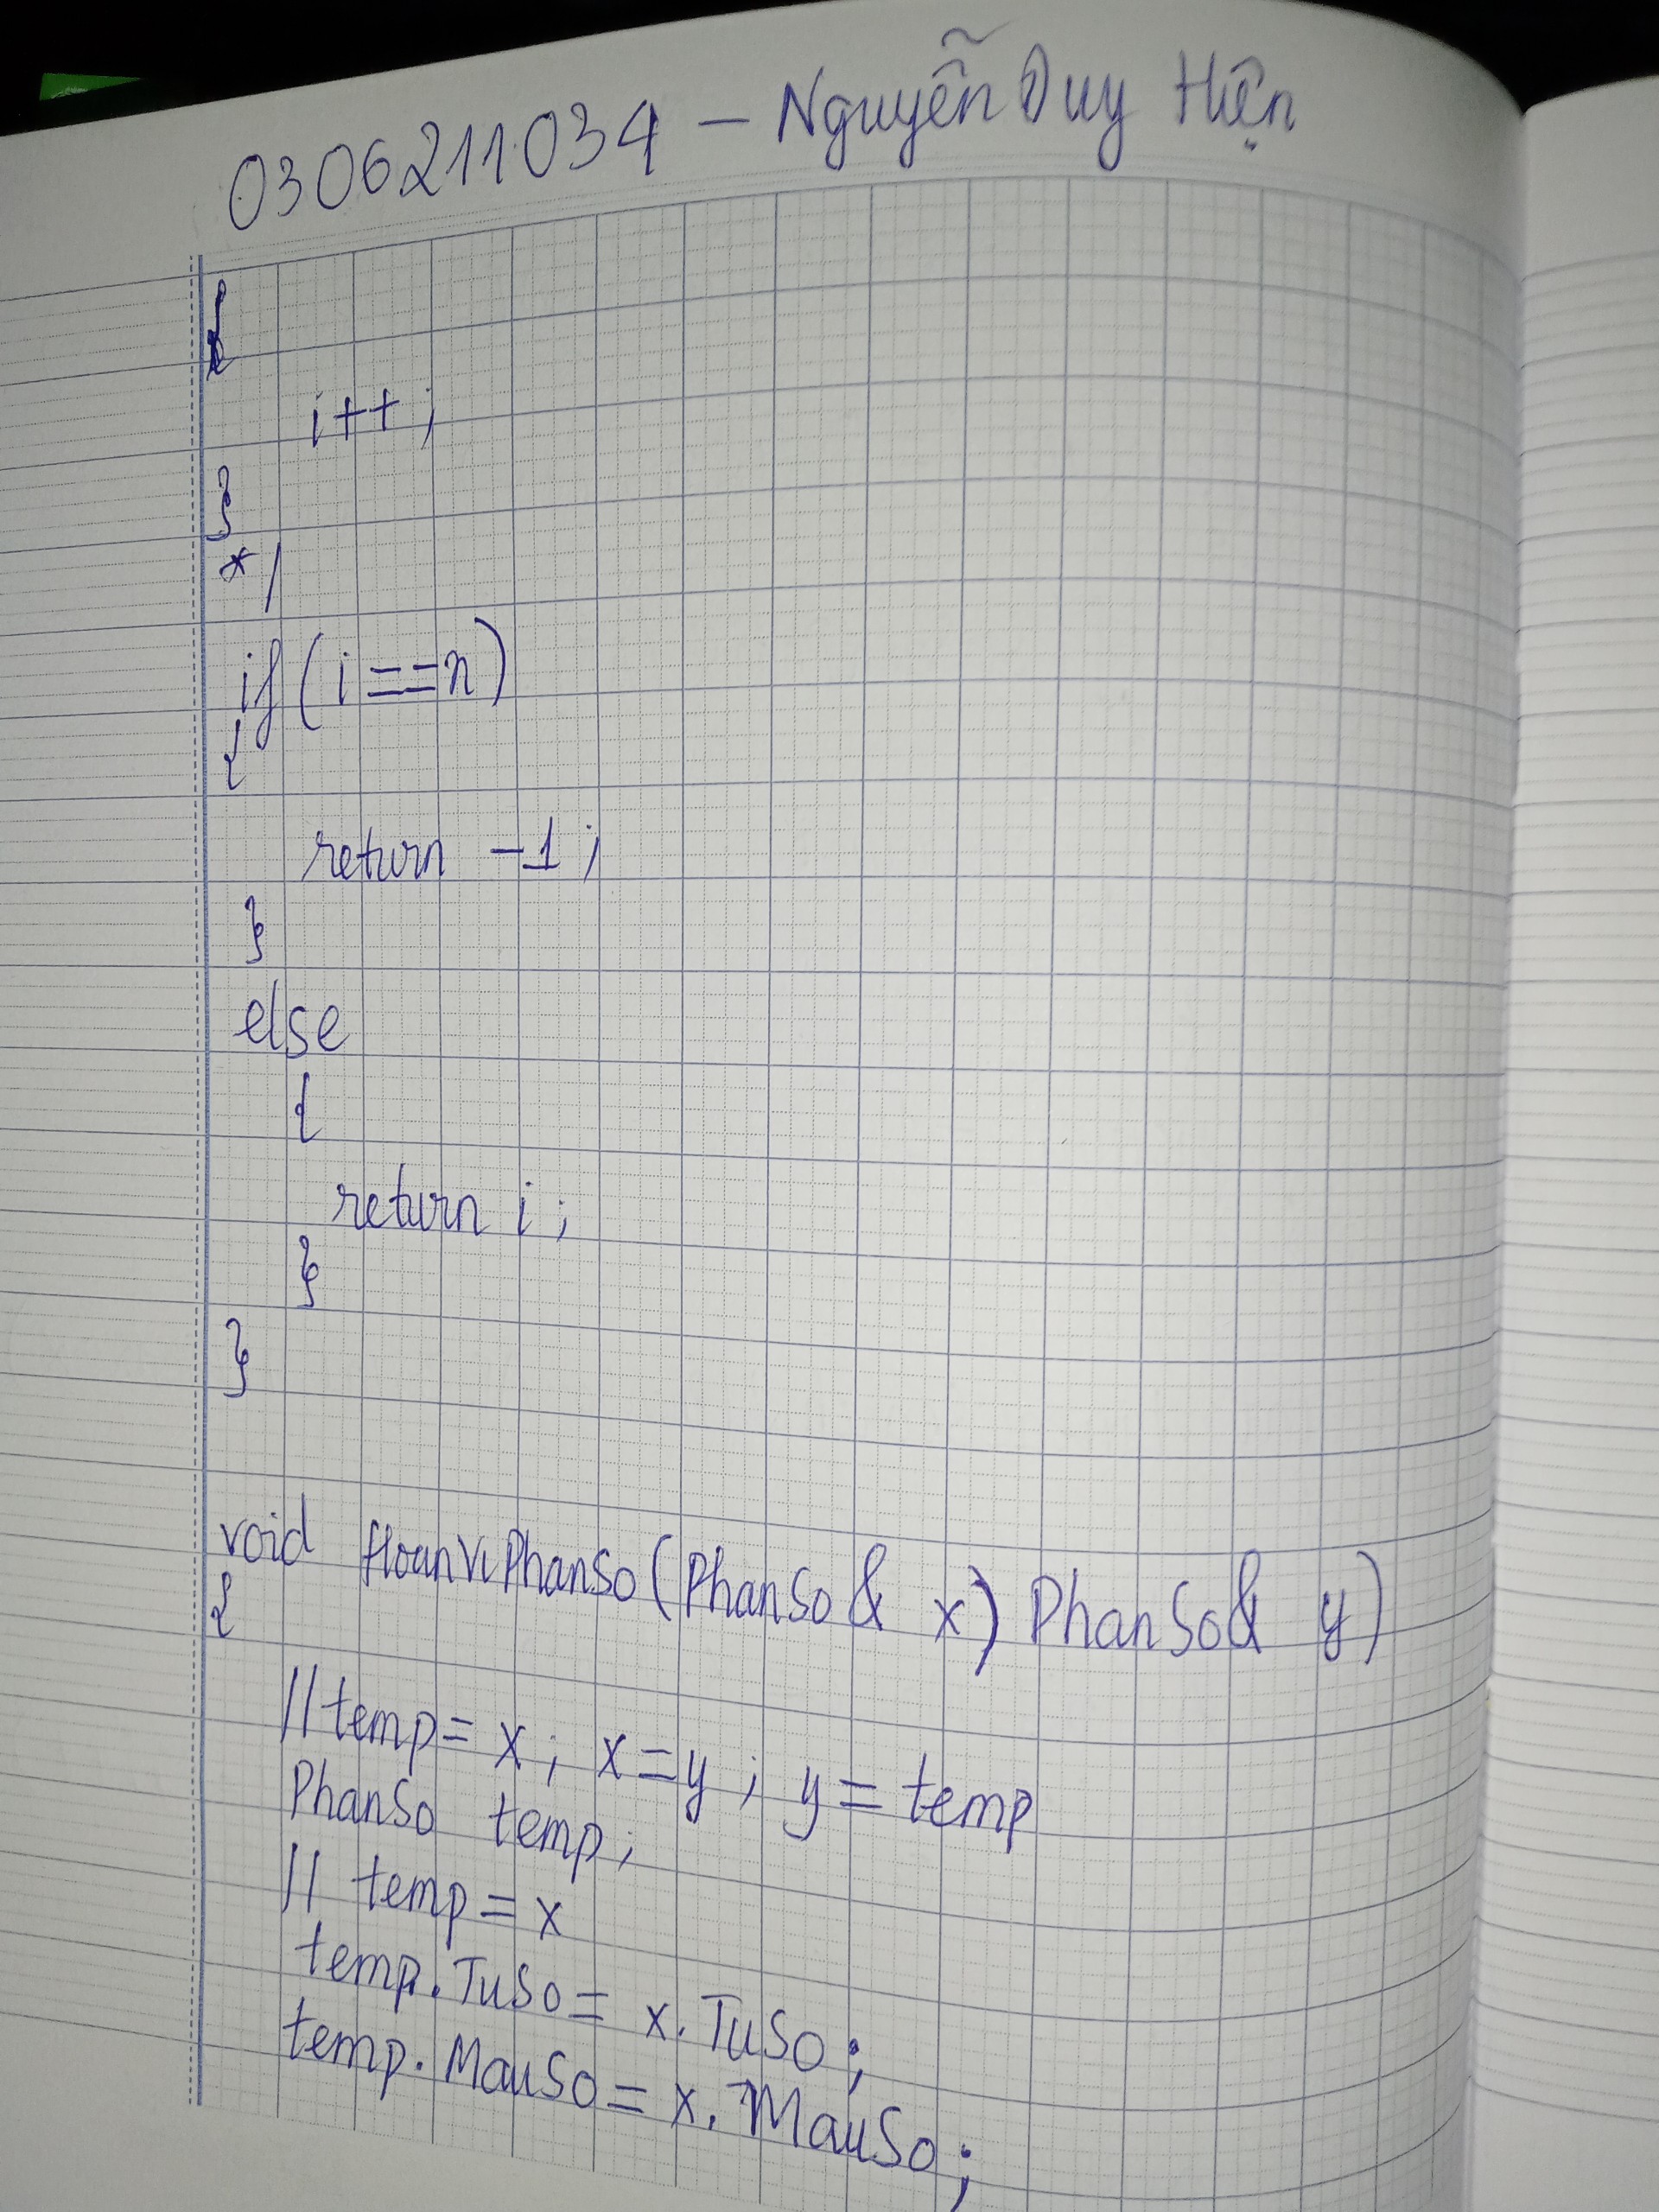 0306211034 - Nguyễn Duy Hiện
{
i++;
}
*/
if(i==n)
{
return -1;
}
else
{
return i;
}
}
void HoanViPhanSo(PhanSo& x) PhanSo& y)
{
//temp= x; x=y; y= temp
PhanSo temp;
// temp= x
temp.TuSo= x.TuSo;
temp.MauSo= x.MauSo;